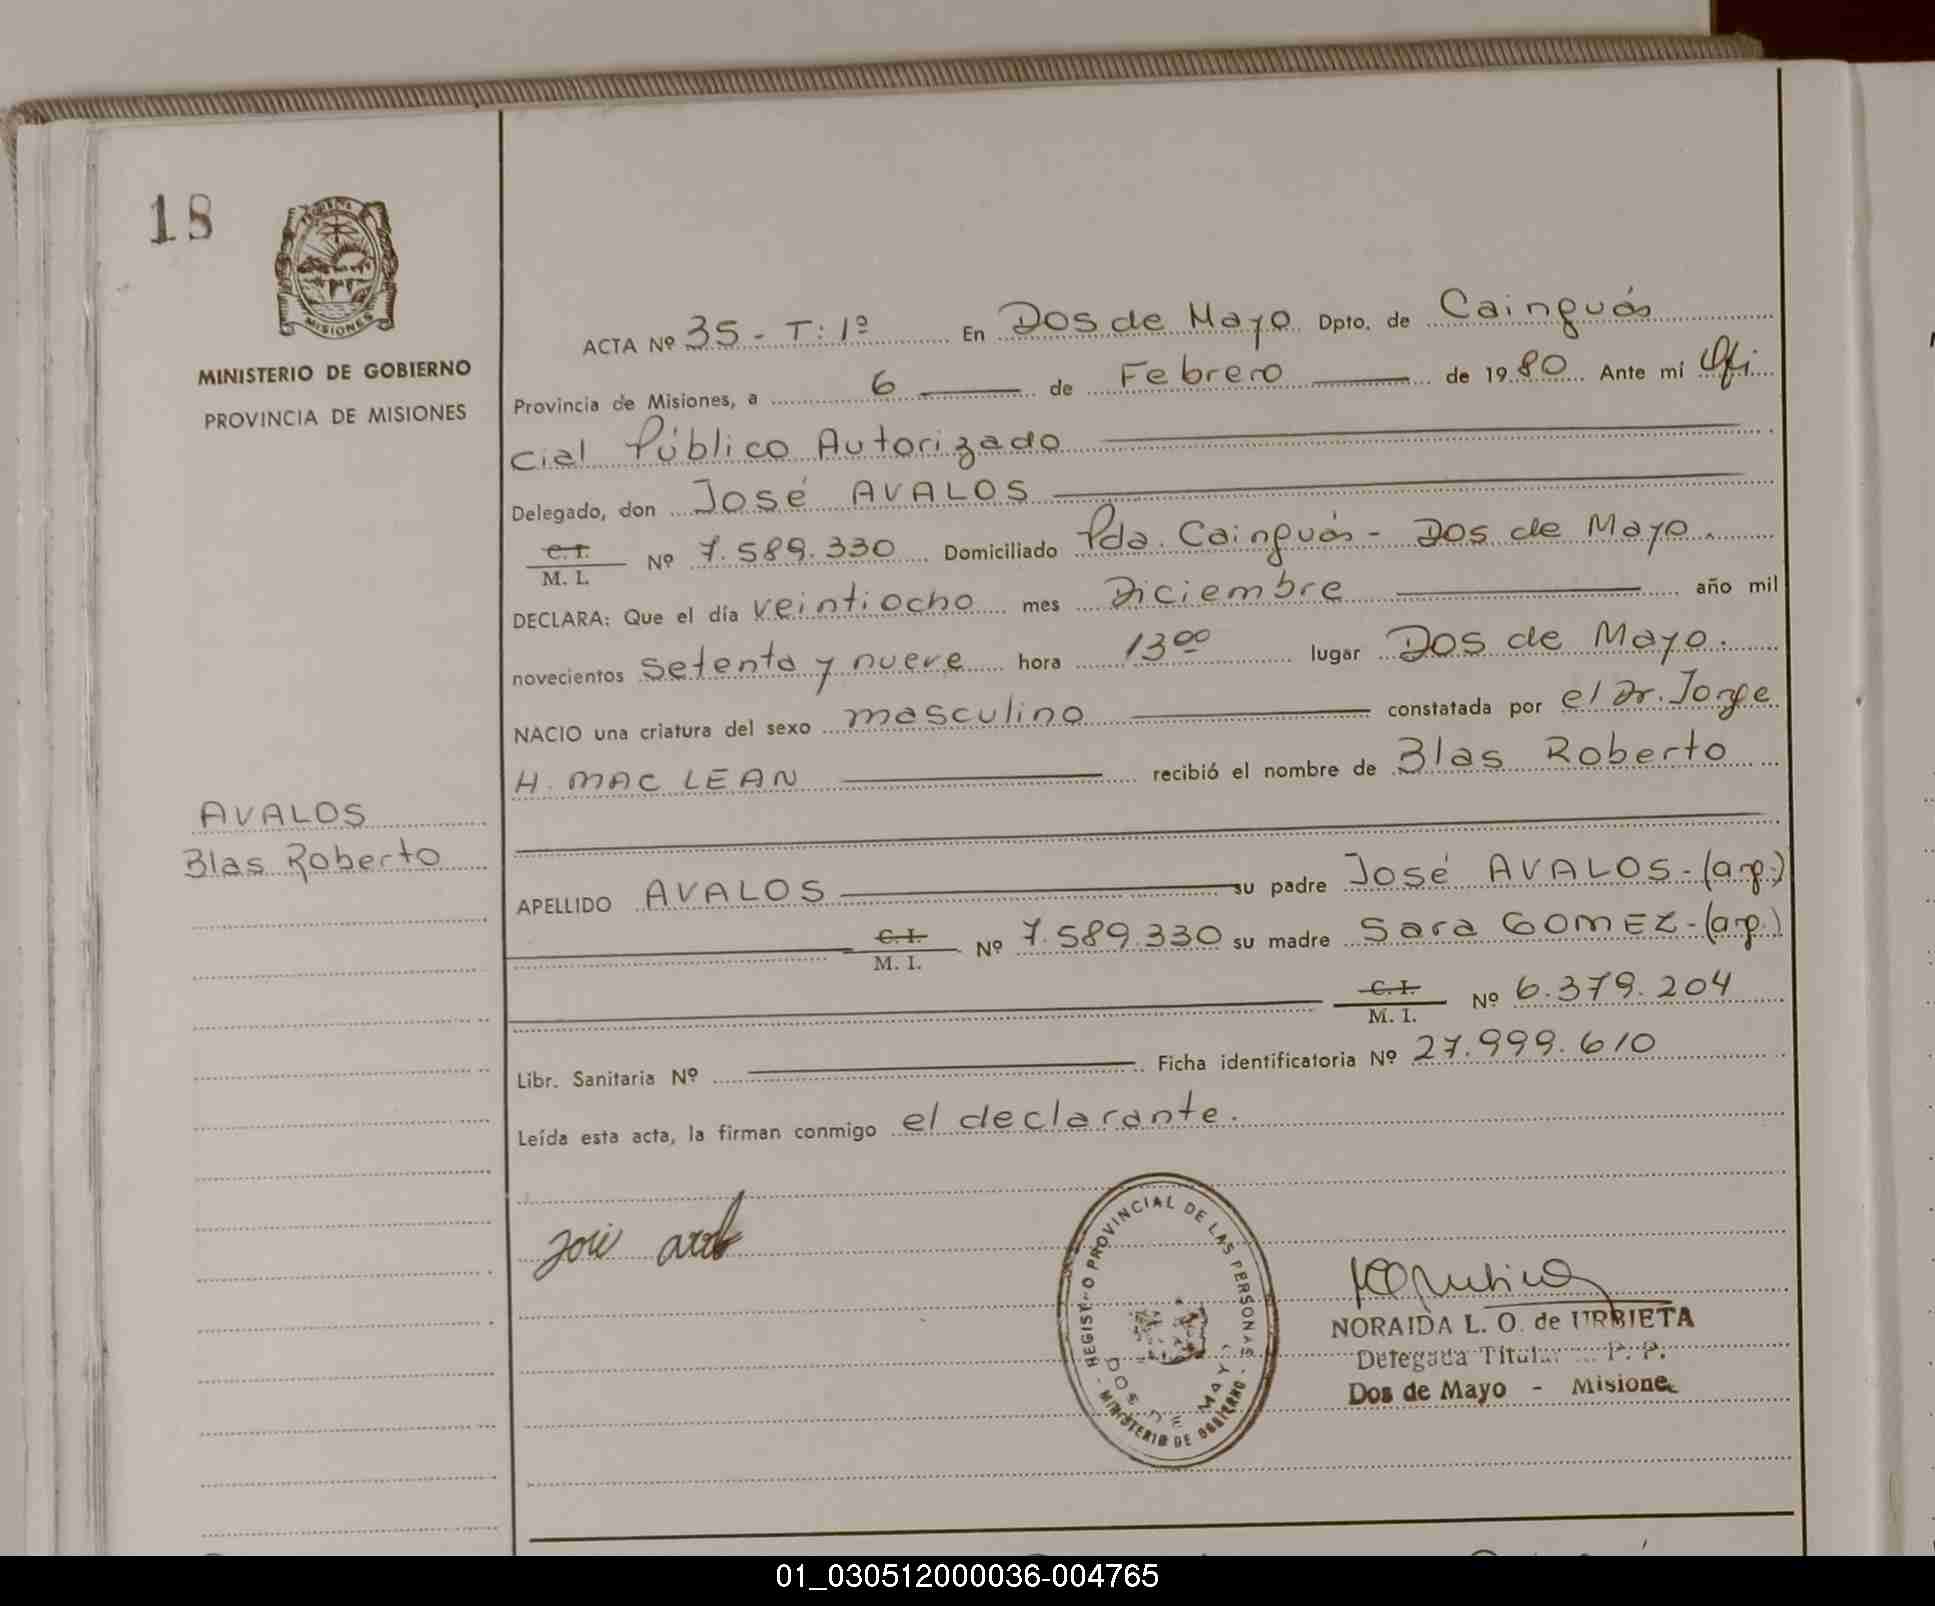 18
MISIONES
MINISTERIO DE GOBIERNO
PROVINCIA DE MISIONES
AVALOS
Blas Roberto
ACTA Nº 35 - T: 1º En Dos de Mayo Dpto. de Cainguás
Provincia de Misiones, a 6 de Febrero de 1980 Ante mí Ofi
cial Público Autorizado
Delegado, don José AVALOS
C.I.
M. I. Nº 7.589.330 Domiciliado Pda. Cainguás - Dos de Mayo.
DECLARA: Que el día veintiocho mes Diciembre año mil
novecientos setenta y nueve hora 13ºº lugar Dos de Mayo.
NACIO una criatura del sexo masculino constatada por el Dr. Jorge
H. MAC LEAN recibió el nombre de Blas Roberto
APELLIDO AVALOS su padre José AVALOS - (arg.)
C.I.
M. I. Nº 7.589.330 su madre Sara GOMEZ - (arg.)
C.I.
M. I. Nº 6.379.204
Libr. Sanitaria Nº Ficha identificatoria Nº 27.999.610
Leída esta acta, la firman conmigo el declarante.
José
REGISTRO PROVINCIAL DE LAS PERSONAS
DOS DE MAYO
- MINISTERIO DE GOBIERNO -
NORAIDA L. O. de URBIETA
Delegada Titular P. P.
Dos de Mayo - Misiones
01_030512000036-004765